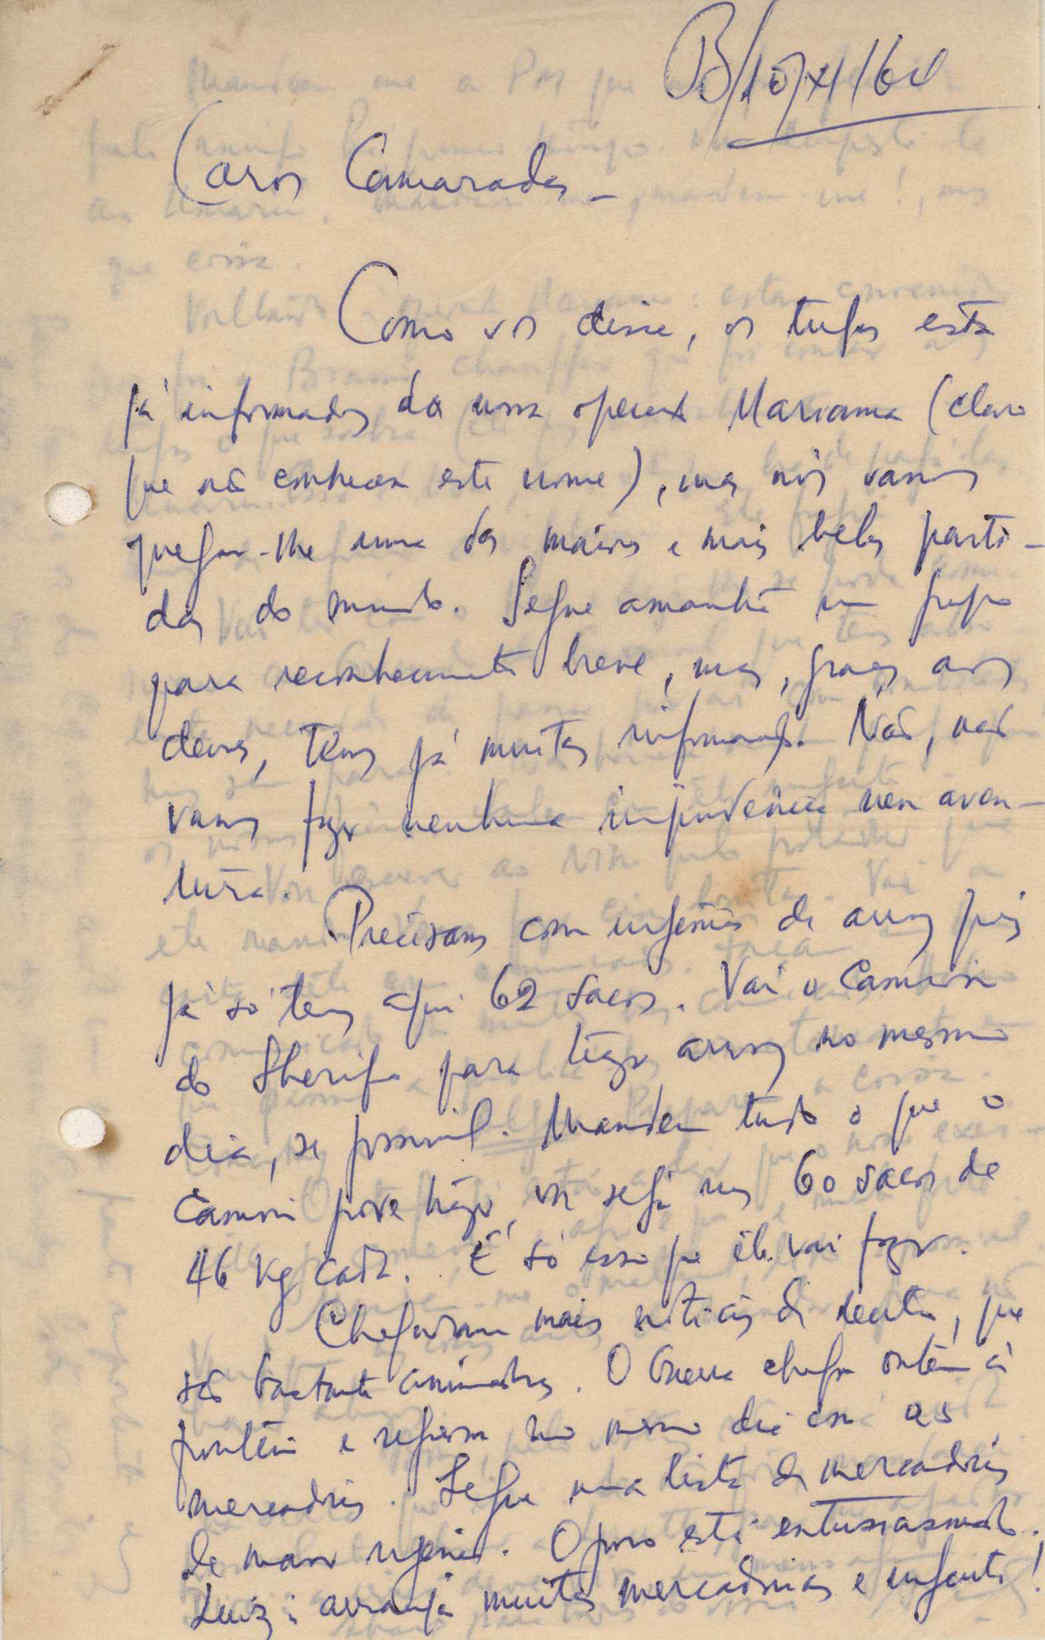 B/10/XI/64
Caros Camaradas _
Como vos disse, os tugas estão
já informados da nossa operação Mariama (claro
que não conhecem este nome), mas nós vamos
pregar-lhe uma das maiores e mais belas parti-
das do mundo. Segue amanhã um grupo
para reconhecimento breve, mas, graças aos
deuses, temos já muitas informações. Não, não
vamos fazer nenhuma imprudência nem aven-
tura.
Precisamos com urgência de arroz pois
já só temos aqui 62 sacos. Vai o Camion
do Sherifo para trazer arroz no mesmo
dia, se possível. Mandem tudo o que o
Camion pode trazer, ou seja uns 60 sacos de
46 kg cada. É só isso que ele vai fazer.
Chegaram mais notícias de dentro, que
são bastante animadoras. O chega ontem à
fronteira e regressa no mesmo dia com as
mercadorias. Segue uma lista de mercadorias
de maior urgência. O povo está entusiasmado.
Luiz: arranja muitas mercadorias e urgente!